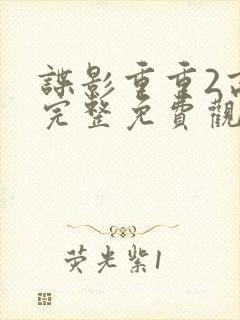 諜影重重2高
完整免費觀
荧光紫1